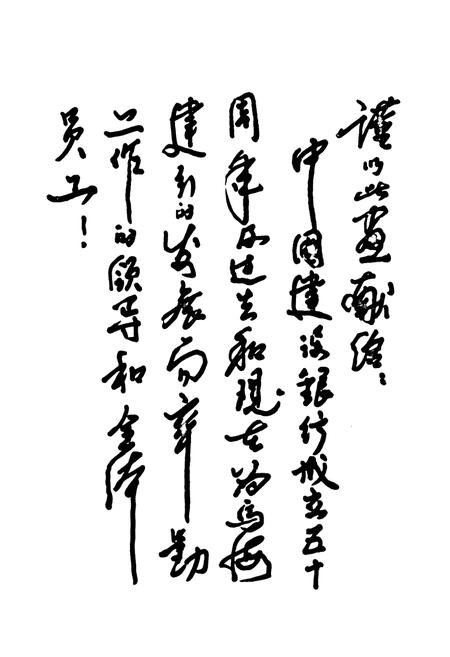 謹以此画献给：
中国建设银行成立五十
周年及过去和现在为乌海
建行的发展而辛勤
工作的领导和全体
员工！